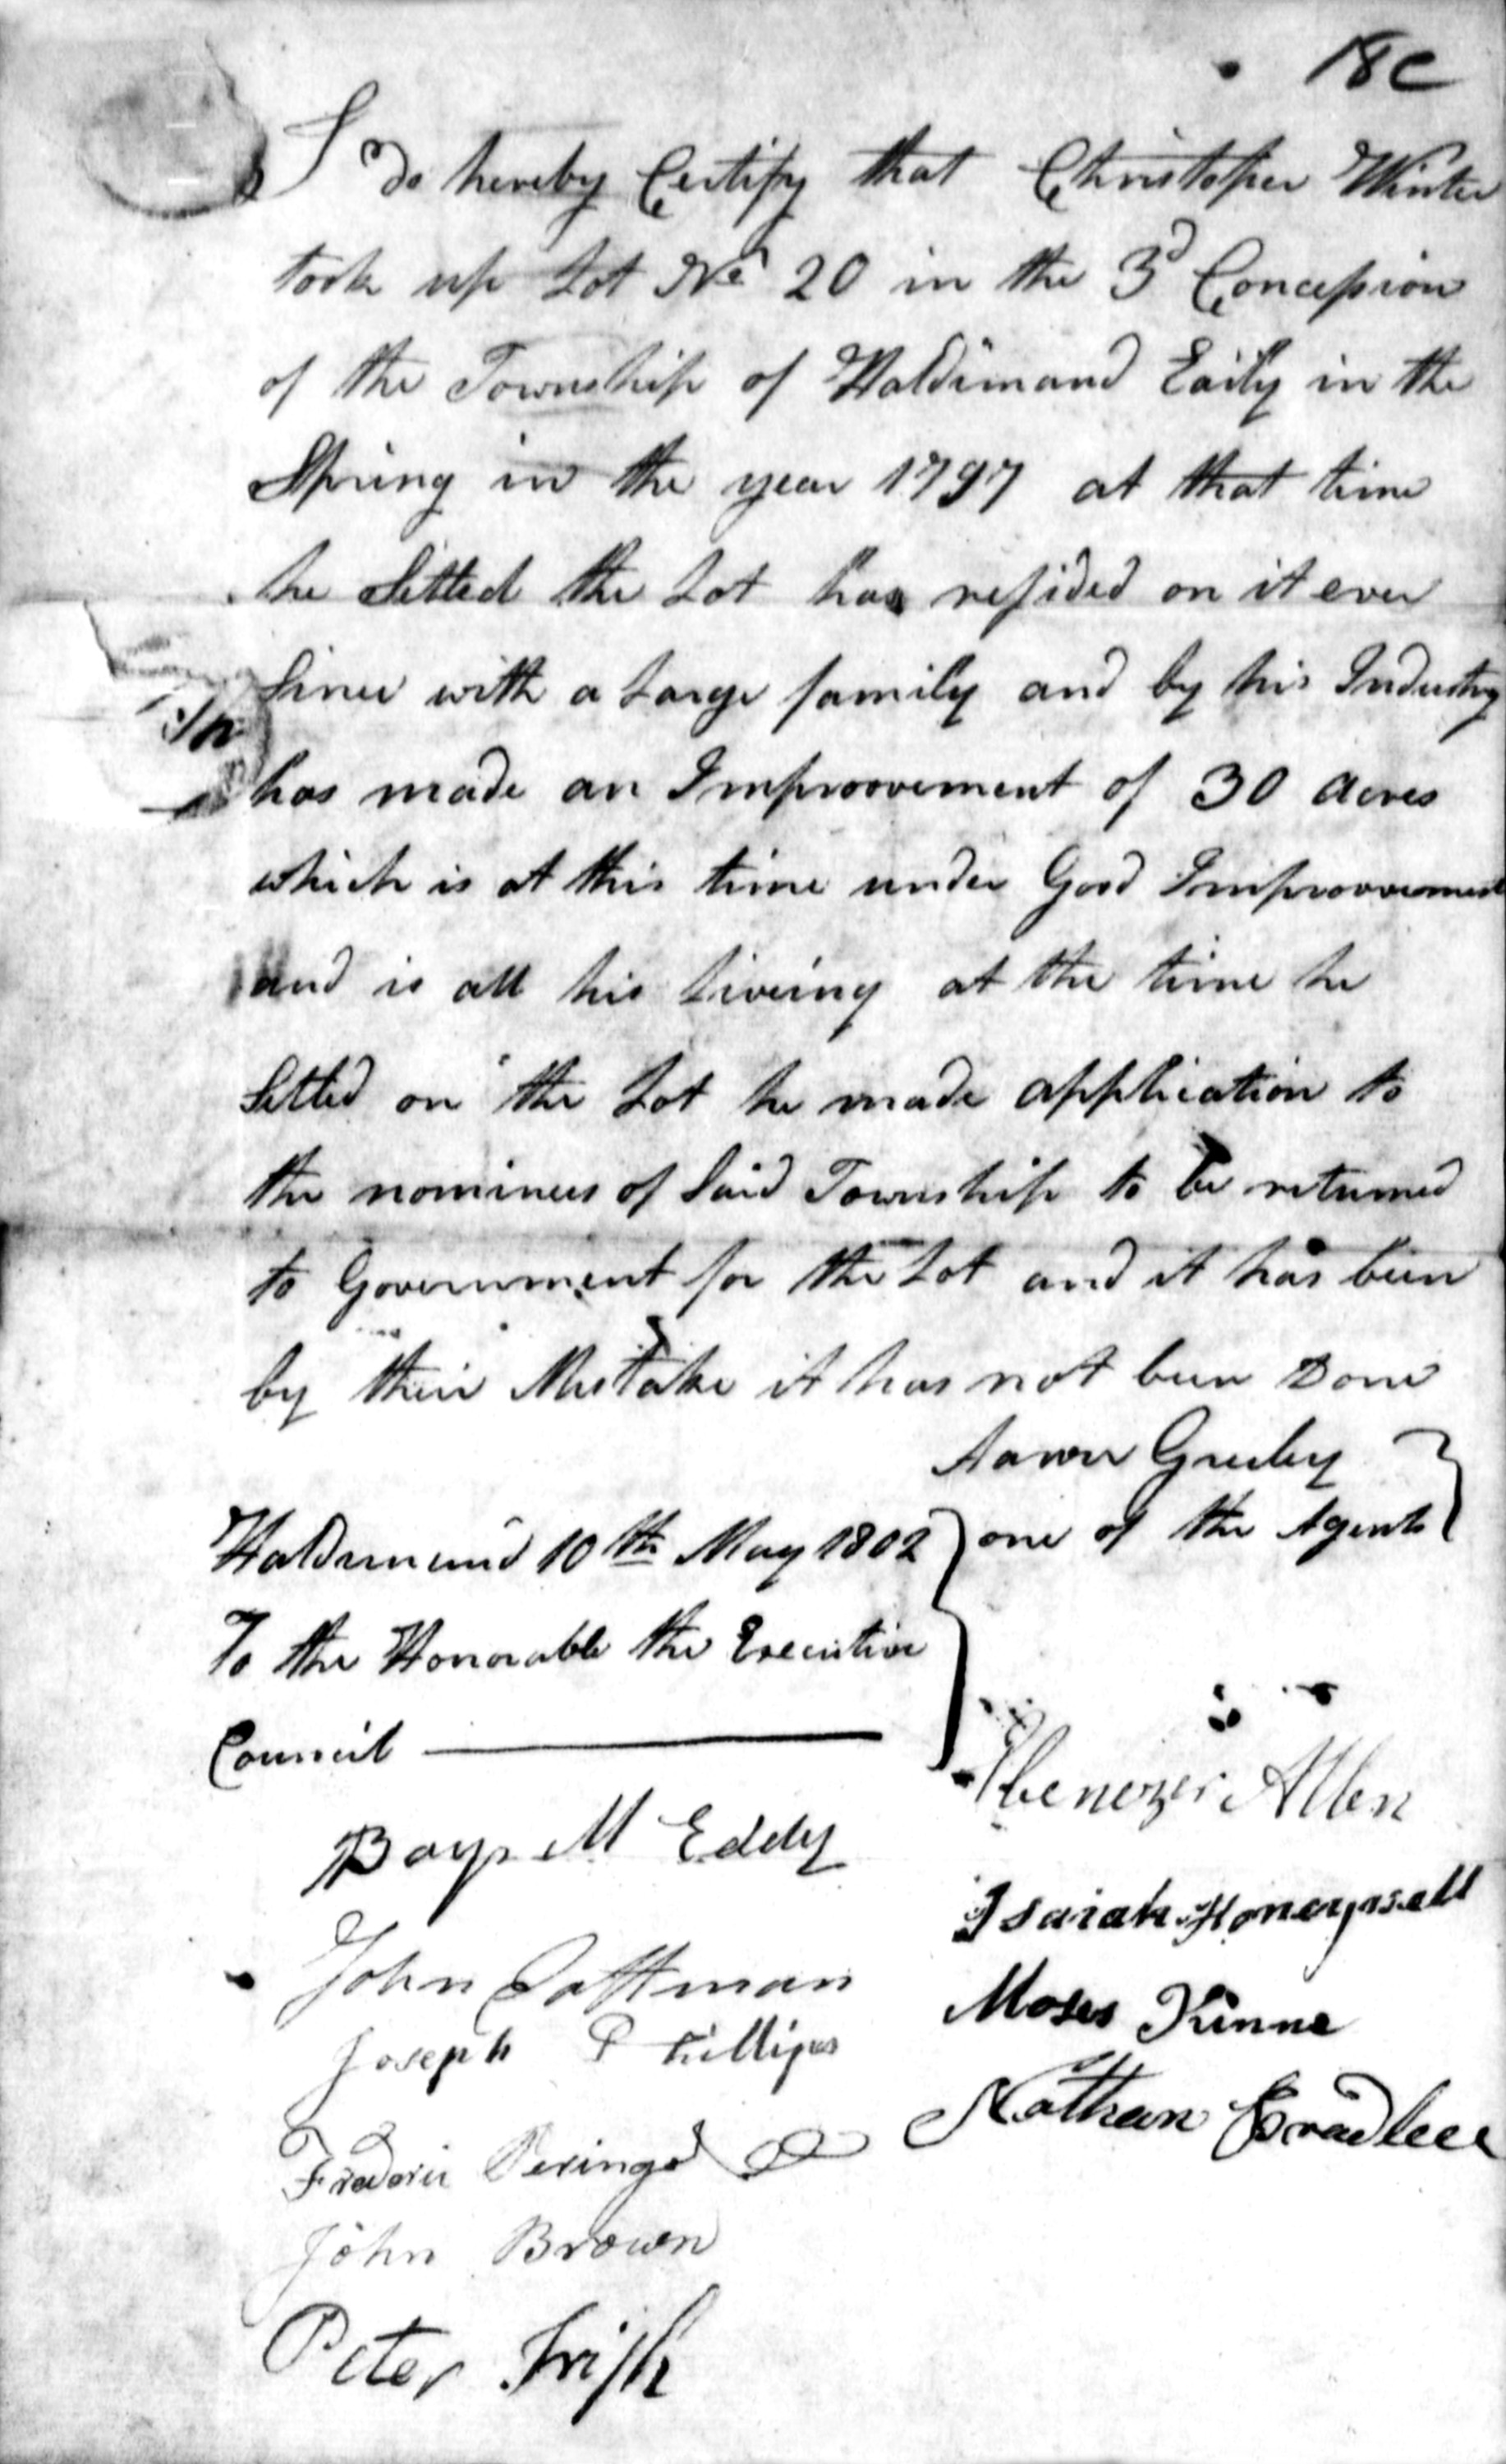 18c
I do hereby Certify that Christopher Winter
took up Lot No 20 in the 3d Concession
of the Township of Haldimand Early in the
Spring in the year 1797 at that time
he Setted the Lot has resided on it ever
Since with a Large family and by his Industry
has made an Improovement of 30 acres
which is at this time under Good Improovement
and is all his Liveing at the time he
Settled on the Lot he made application to
the nominees of Said Township to be returned
to Government for the Lot and it has been
by their Mistake it has not been Done
Aaron Greeley
one of the Agents
Haldimand 10th May 1802
To the Honorable the Executive
Council
Ebenezer Allen
Bays M Eddy
Isaiah Honeywell
John
Moses Kinne
Joseph Phillips
Nathan
Frederic
John Brown
Peter Irish